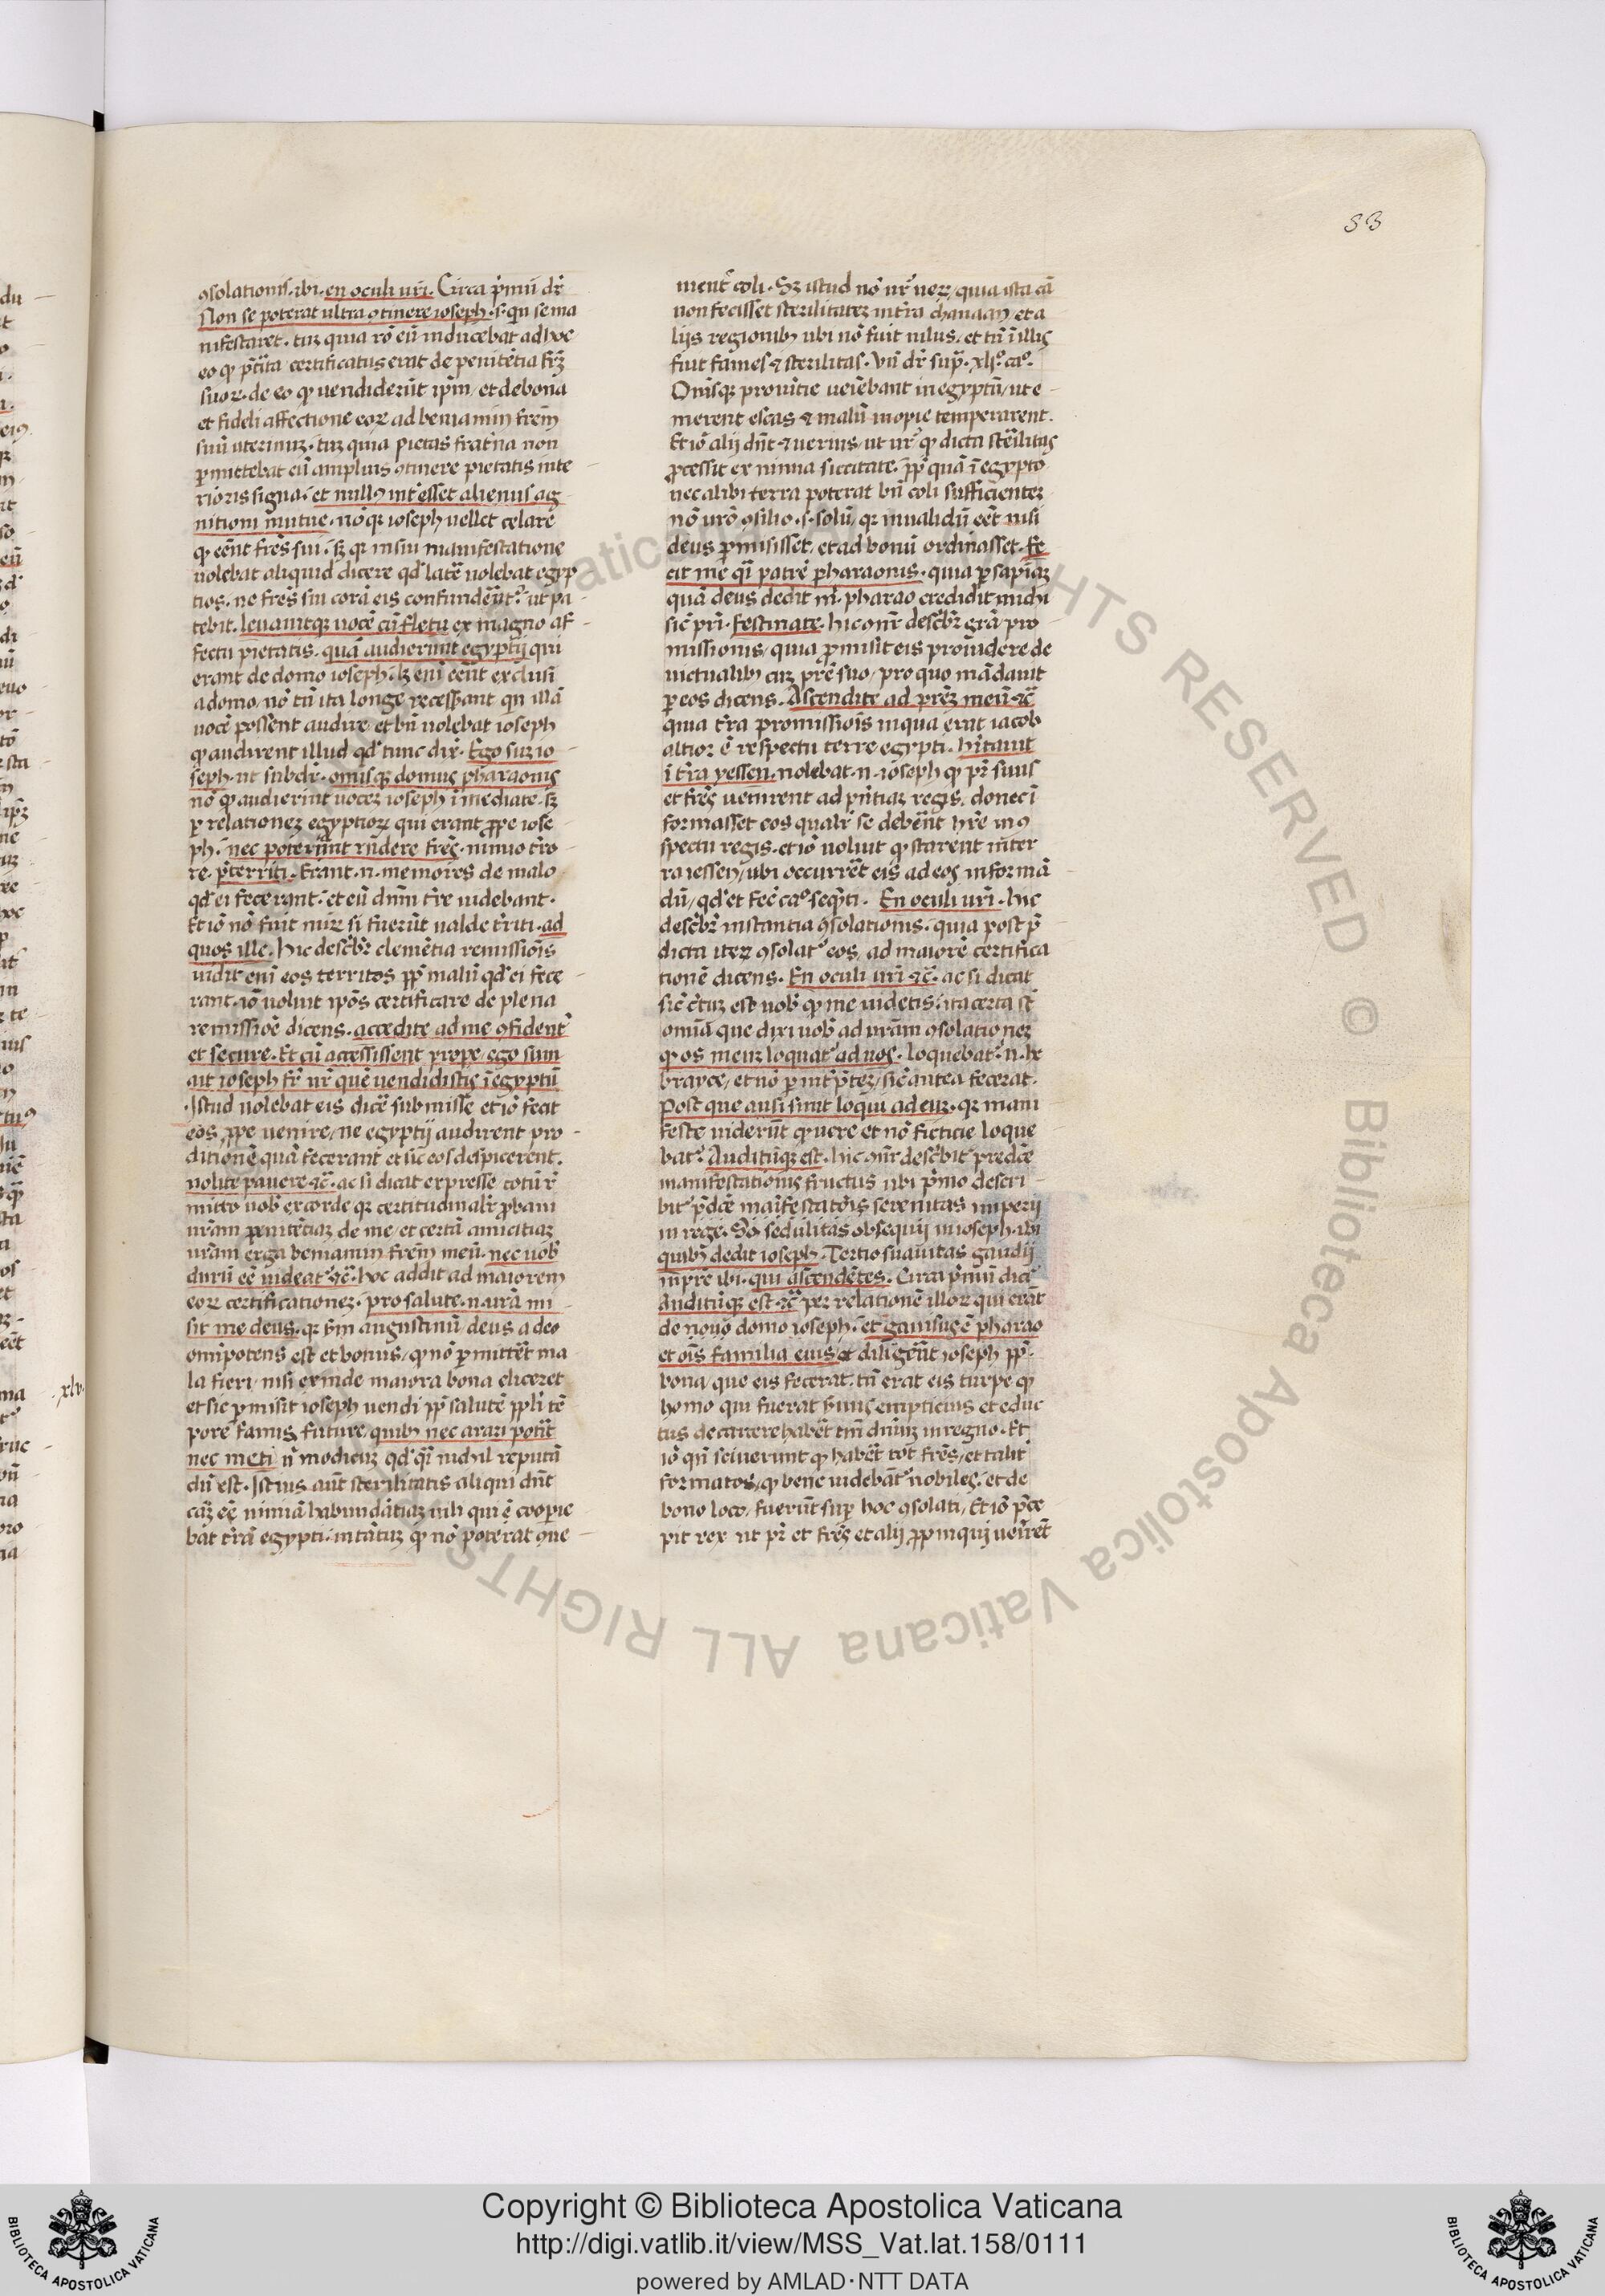 53
ꝯsolationis. ibi. en oculi uri. Circa pimu dr
Non se poterat ultra ꝯtinere ioseph. s. qn se ma
nifestaret. tuz quia ro eu inducebat ad hoc
certificatus erat de penitetia
suor. de eo ꝙ vendiderut ipm / et de bona
et fideli affectione eor ad beniamin frem
suu uterinuz. tuz quia pietas fratna non
pmittebat eu amplius ꝯtinere pietatis inte
rioris signa. et nullꝰ intesset alienus ag
nitioni mutue. no qr ioseph vellet celare
ꝙ eent fres sui. sz qr in sui manifestatione
uolebat aliquid dicere qd latere uolebat egyp
tios. ne fres sui cora eis confunderent. ut pa
tebit. leuauitqz uoce cu fletu ex magno af
fectu pietatis. qua audierunt egyptij qui
erant de domo ioseph. lz eni eent exclusi
a domo / no tn ita longe recesserant qn illa
uoce possent audire / et bn uolebat ioseph
ꝙ audirent illud qd tunc dix. Ego suz io
seph. ut subdr. omisqz domus pharaonis
no ꝙ audierint uocez ioseph imediate. sz
p relationez egyptiorz qui erant ꝓpe iose
ph. nec poterant rndere fres. nimio tro
re pterriti. Erant. n. memores de malo
qd ei fecerant. et eu dnm tre uidebant.
Et io no fuit mir si fuerut ualde triti. ad
quos ille. hic descbr clemetia remissiois
uidit eni eos territos pp malu qd ei fece
rant. io uoluit ipos certificare de plena
remissioe dicens. accedite ad me ꝯfident
et secure. Et cu accessissent prope / ego sum
ait ioseph fr ur que vendidistis i egyptu
Istud uolebat eis dice submisse et io fecit
eos ꝓpe uenire / ne egyptij audirent pro
ditione qua fecerant et sic eos despicerent.
nolite pauere ⁊c. ac si dicat expresse totu
mitto uob ex corde qr certitudinalr ꝓbaui
uram penitetiaz de me / et certa amicitiaz
uram erga beniamin frem meu. nec uob
duru ee uideat ⁊c. hoc addit ad maiorem
eorz certificationez. pro salute. n. ura mi
sit me deus. qr sm augustinu deus adeo
omipotens est et bonus / ꝙ no pmittet ma
la fieri / nisi exinde maiora bona eliceret
et sic pmisit ioseph uendi pp salute ppli te
pore famis future / quibꝰ nec arari potit
nec meti n modicuz qd qi nichil reputa
du est. Istius aut sterilitatis aliqui dnt
caz ee nimia habundatiaz nili qui e coopie
bat tra egypti. intatuz ꝙ no poterat ꝯue
nient coli. Sz istud no ur uez / quia ista ca
non fecisset sterilitatez intra chanaan et a
lijs regionibꝰ ubi no fuit nilus. et tn i illis
fuit fames ⁊ sterilitas. Vn dr sup. xli. ca.
Omsqz prouitie ueiebant in egyptu / ut e
merent escas ⁊ malu inopie temperarent.
Et io alij dnt ⁊ uerius / ut ur ꝙ dicta sterilitas
ꝓcessit ex nimia siccitate. pp qua i egypto
nec alibi terra poterat bn coli sufficienter
no uro ꝯsilio. s. solu / qr inualidu eet nisi
deus pmisisset / et ad bonu ordinasset. fe
cit me qi patre pharaonis. quia p sapiaz
qua deus dedit m. pharao credidit michi
sic pri. festinate. hic onr descbr gra pro
missionis / quia ꝓmisit eis prouidere de
uictualibꝰ cuz pre suo / pro quo madauit
p eos dicens. Ascendite ad prez meu ⁊c
quia tra promissiois in qua erat iacob
altior e respectu terre egypti. hitauit
i tra yessen. nolebat. n. ioseph ꝙ pr suus
et fres uenirent ad pntiaz regis. donec i
formasset eos qualr se debent hre in ꝯ
spectu regis. et io uoluit ꝙ starent in ter
ra iessen / ubi occurret eis ad eos informa
du / qd et fec ca. seqti. En oculi uri. hic
descbr instantia ꝯsolationis. quia post p
dicta iterz ꝯsolat eos / ad maiore certifica
tione dicens. En oculi uri ⁊c. ac si dicat
sic certuz est uob ꝙ me uidetis. ita certa st
omia que dixi uob ad uram ꝯsolationez
ꝙ os meuz loquat ad uos. loquebat. n. he
brayce / et no p intptez / sic antea fecerat.
Post que ausi sunt loqui ad euz. qr mani
feste uiderut ꝙ uere et no ficticie loque
bat. Auditumqz est. hic onr describit predce
manifestationis fructus ubi pimo descri
bit pdce maifestatois serenitas imperij
in rege. So sedulitas obsequij in ioseph. ibi
quibꝰ dedit ioseph. Tertio suauitas gaudij
in pre ibi. qui ascendetes. Circa pimu dicit
Auditumqz est. ⁊c per relatione illorz qui erat
de nouo domo ioseph. et gauisus e pharao
et ois familia eius et diligeut ioseph pp.
bona / que eis fecerat. tn erat eis turpe ꝙ
homo qui fuerat seruus empticius et educ
tus de carcere habet tm dniuz in regno. Et
io qn sciuerunt ꝙ habet tot fres / et talit
formatos / ꝙ bene uidebat nobiles. et de
bono loco / fuerut sup hoc ꝯsolati / Et io pce
pit rex ut pr et fres et alij ꝓpinqui ueniret
xlv
Copyright © Biblioteca Apostolica Vaticana
http://digi.vatlib.it/view/MSS_Vat.lat.158/0111
powered by AMLAD·NTT DATA
BIBLIOTECA APOSTOLICA VATICANA
BIBLIOTECA APOSTOLICA VATICANA
© Biblioteca Apostolica Vaticana ALL RIGHTS RESERVED